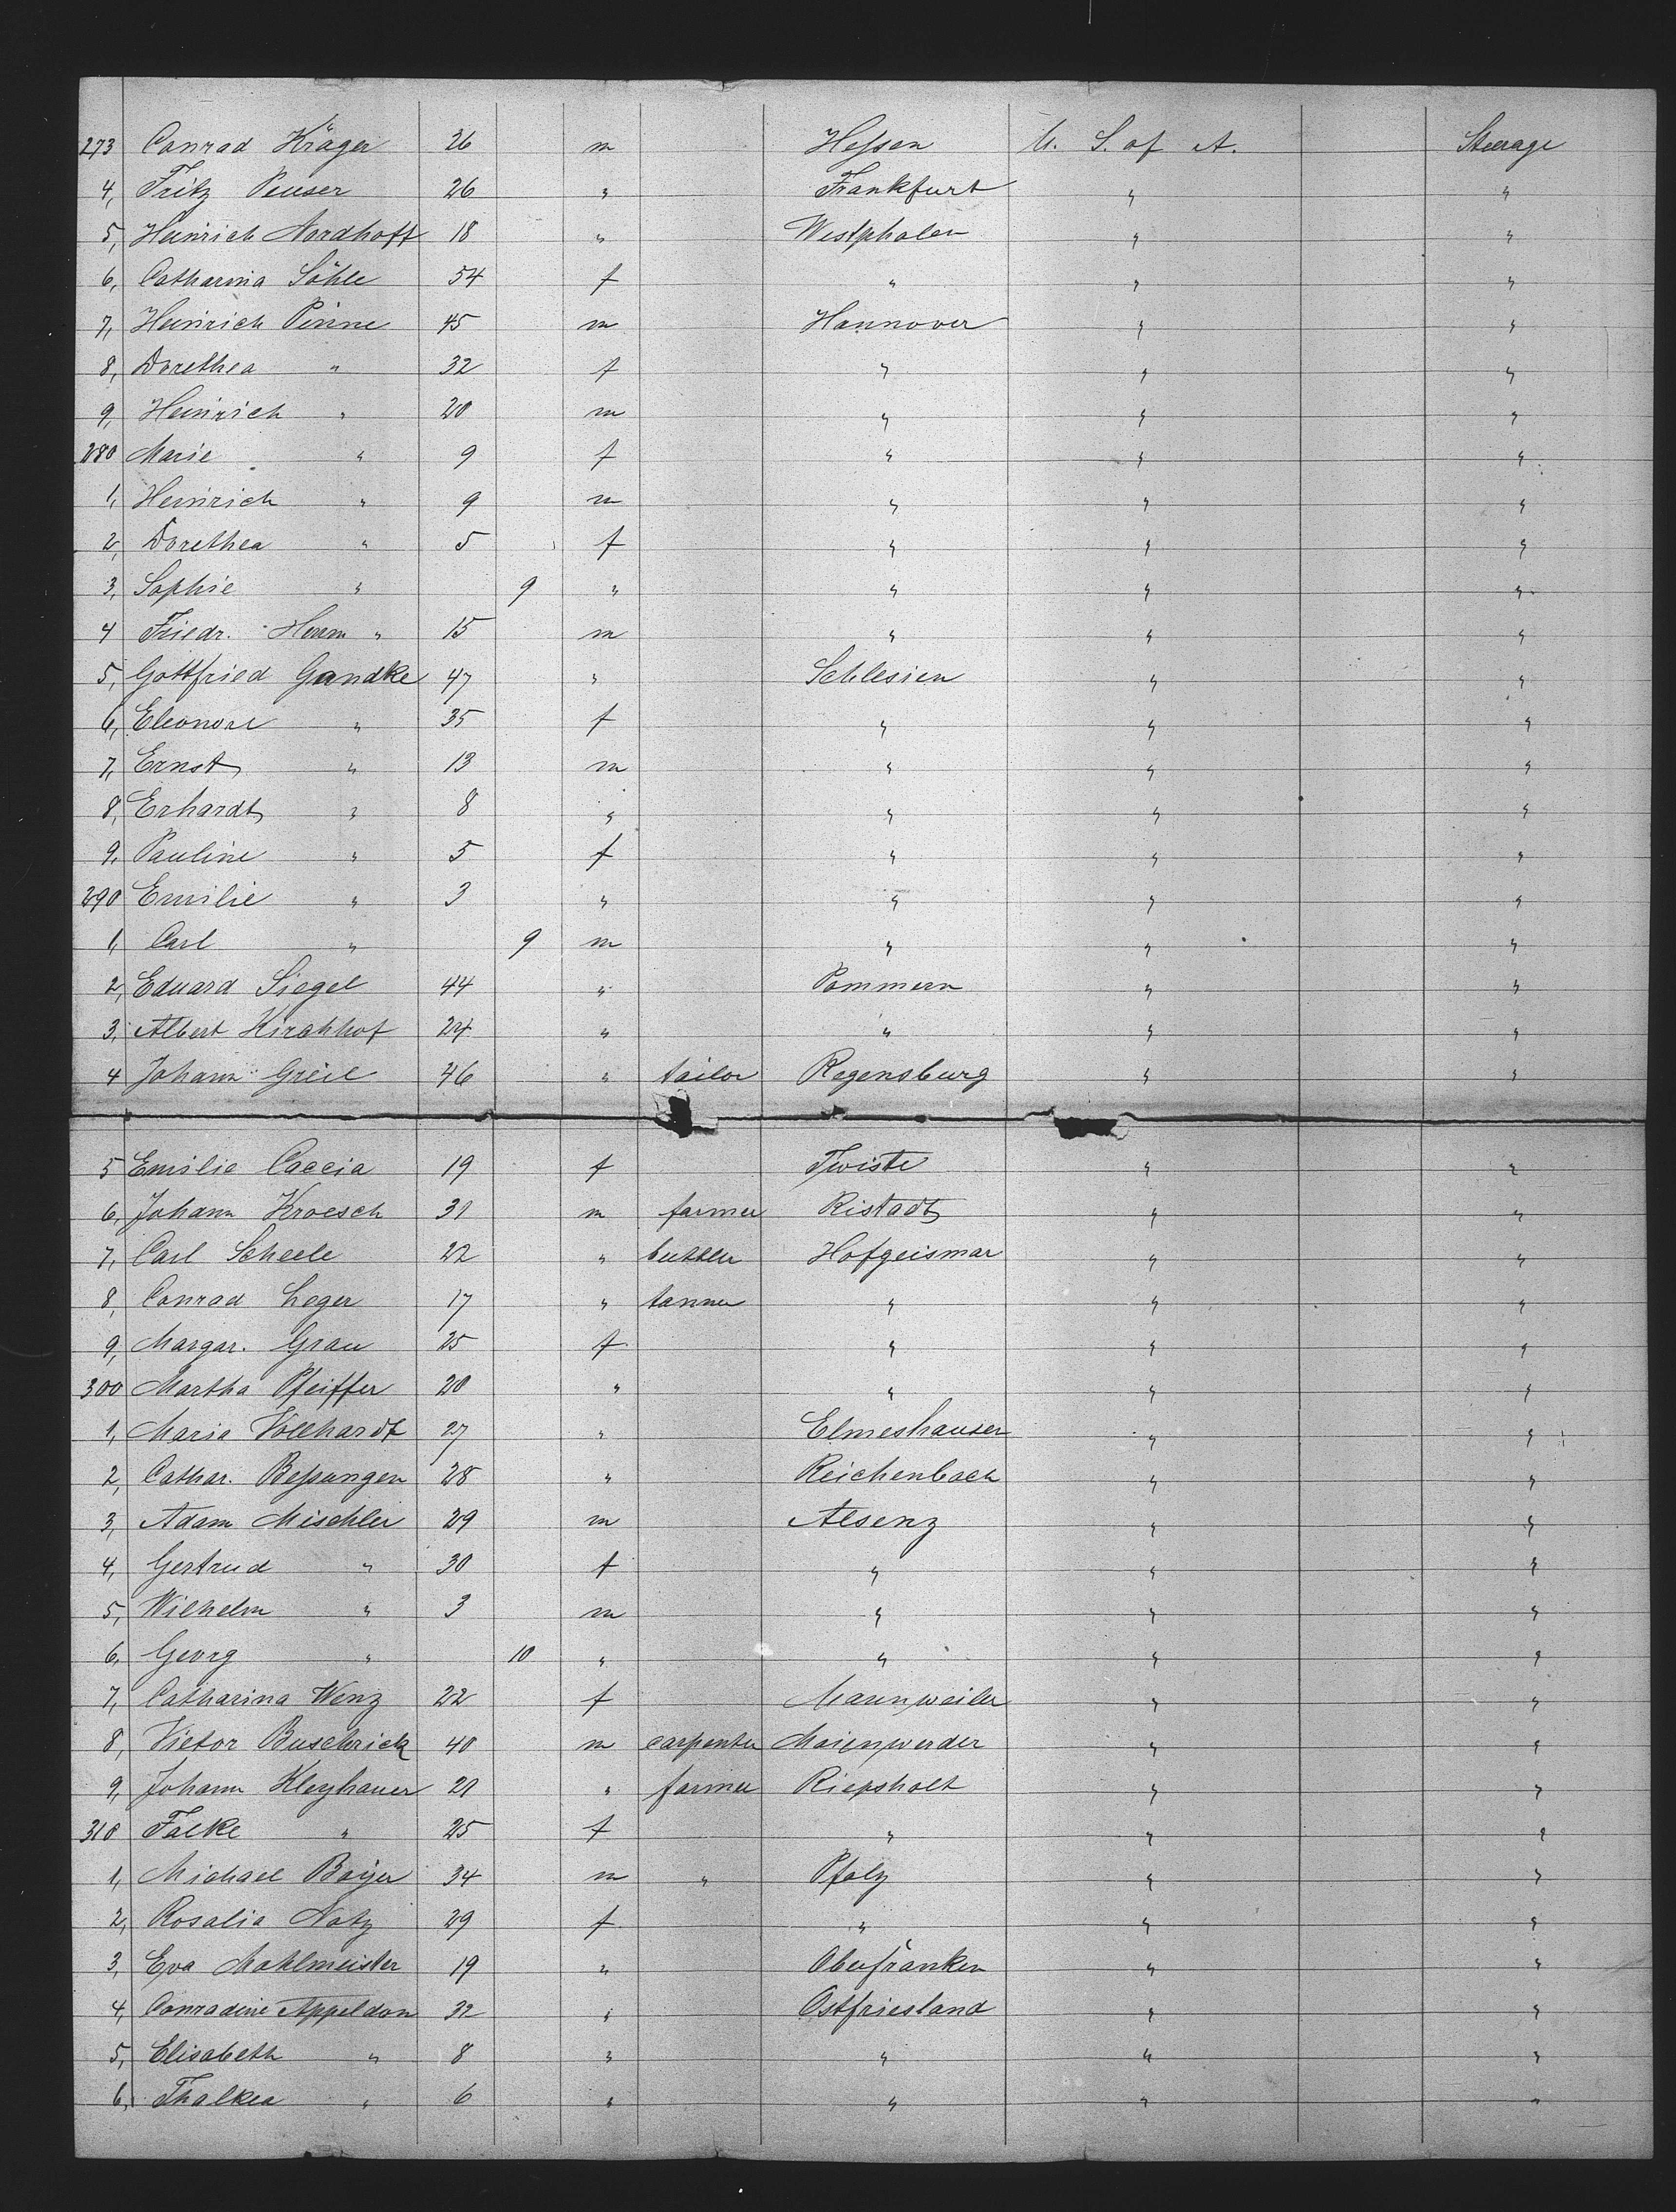 273 Conrad Kräger 26 m Hessen U. S. of A. Steerage
4, Fritz Peuser 26 " Frankfurt " "
5, Heinrich Nordhoff 18 " Westphalen " "
6, Catharina Söhle 54 f " " "
7, Heinrich Pinne 45 m Hannover " "
8, Dorethea " 32 f " " "
9, Heinrich " 20 m " " "
280 Marie " 9 f " " "
1, Heinrich " 9 m " " "
2, Dorethea " 5 f " " "
3, Sophie " 9 " " " "
4 Friedr. Herm " 15 m " " "
5, Gottfried Gandke 47 " Schlesien " "
6, Eleonore " 35 f " " "
7, Ernst " 13 m " " "
8, Erhardt " 8 " " " "
9, Pauline " 5 f " " "
290 Emilie " 3 " " " "
1, Carl " 9 m " " "
2, Eduard Siegel 44 " Pommern " "
3, Albert Kirchhof 24 " " " "
4 Johann Greil 46 " tailor Regensburg " "
5 Emilie Caccia 19 f Twiste " "
6, Johann Kroesch 31 m farmer Ristadt " "
7, Carl Scheele 22 " butler Hofgeismar " "
8, Conrad Leger 17 " tanner " " "
9, Margar. Grau 25 f " " "
300 Martha Pfeiffer 20 " " " "
1, Maria Vollhardt 27 " Elmeshausen " "
2, Cathar. Bessungen 28 " Reichenbach " "
3, Adam Mischler 29 m Alsenz " "
4, Gertrud " 30 f " " "
5, Wilhelm " 3 m " " "
6, Georg " 10 " " " "
7, Catharina Wenz 22 f Marenweiler " "
8, Victor Buschrick 40 m carpenter Marienwerder " "
9, Johann Kleyhauer 21 " farmer Riepsholt " "
310 Falke " 25 f " " "
1, Michael Boyer 34 m " Pfalz " "
2, Rosalia Notz 29 f " " "
3, Eva Mahlmeister 19 " Oberfranken " "
4, Conradine Appeldon 32 " Ostfriesland " "
5, Elisabeth " 8 " " " "
6, Thalkea " 6 " " " "